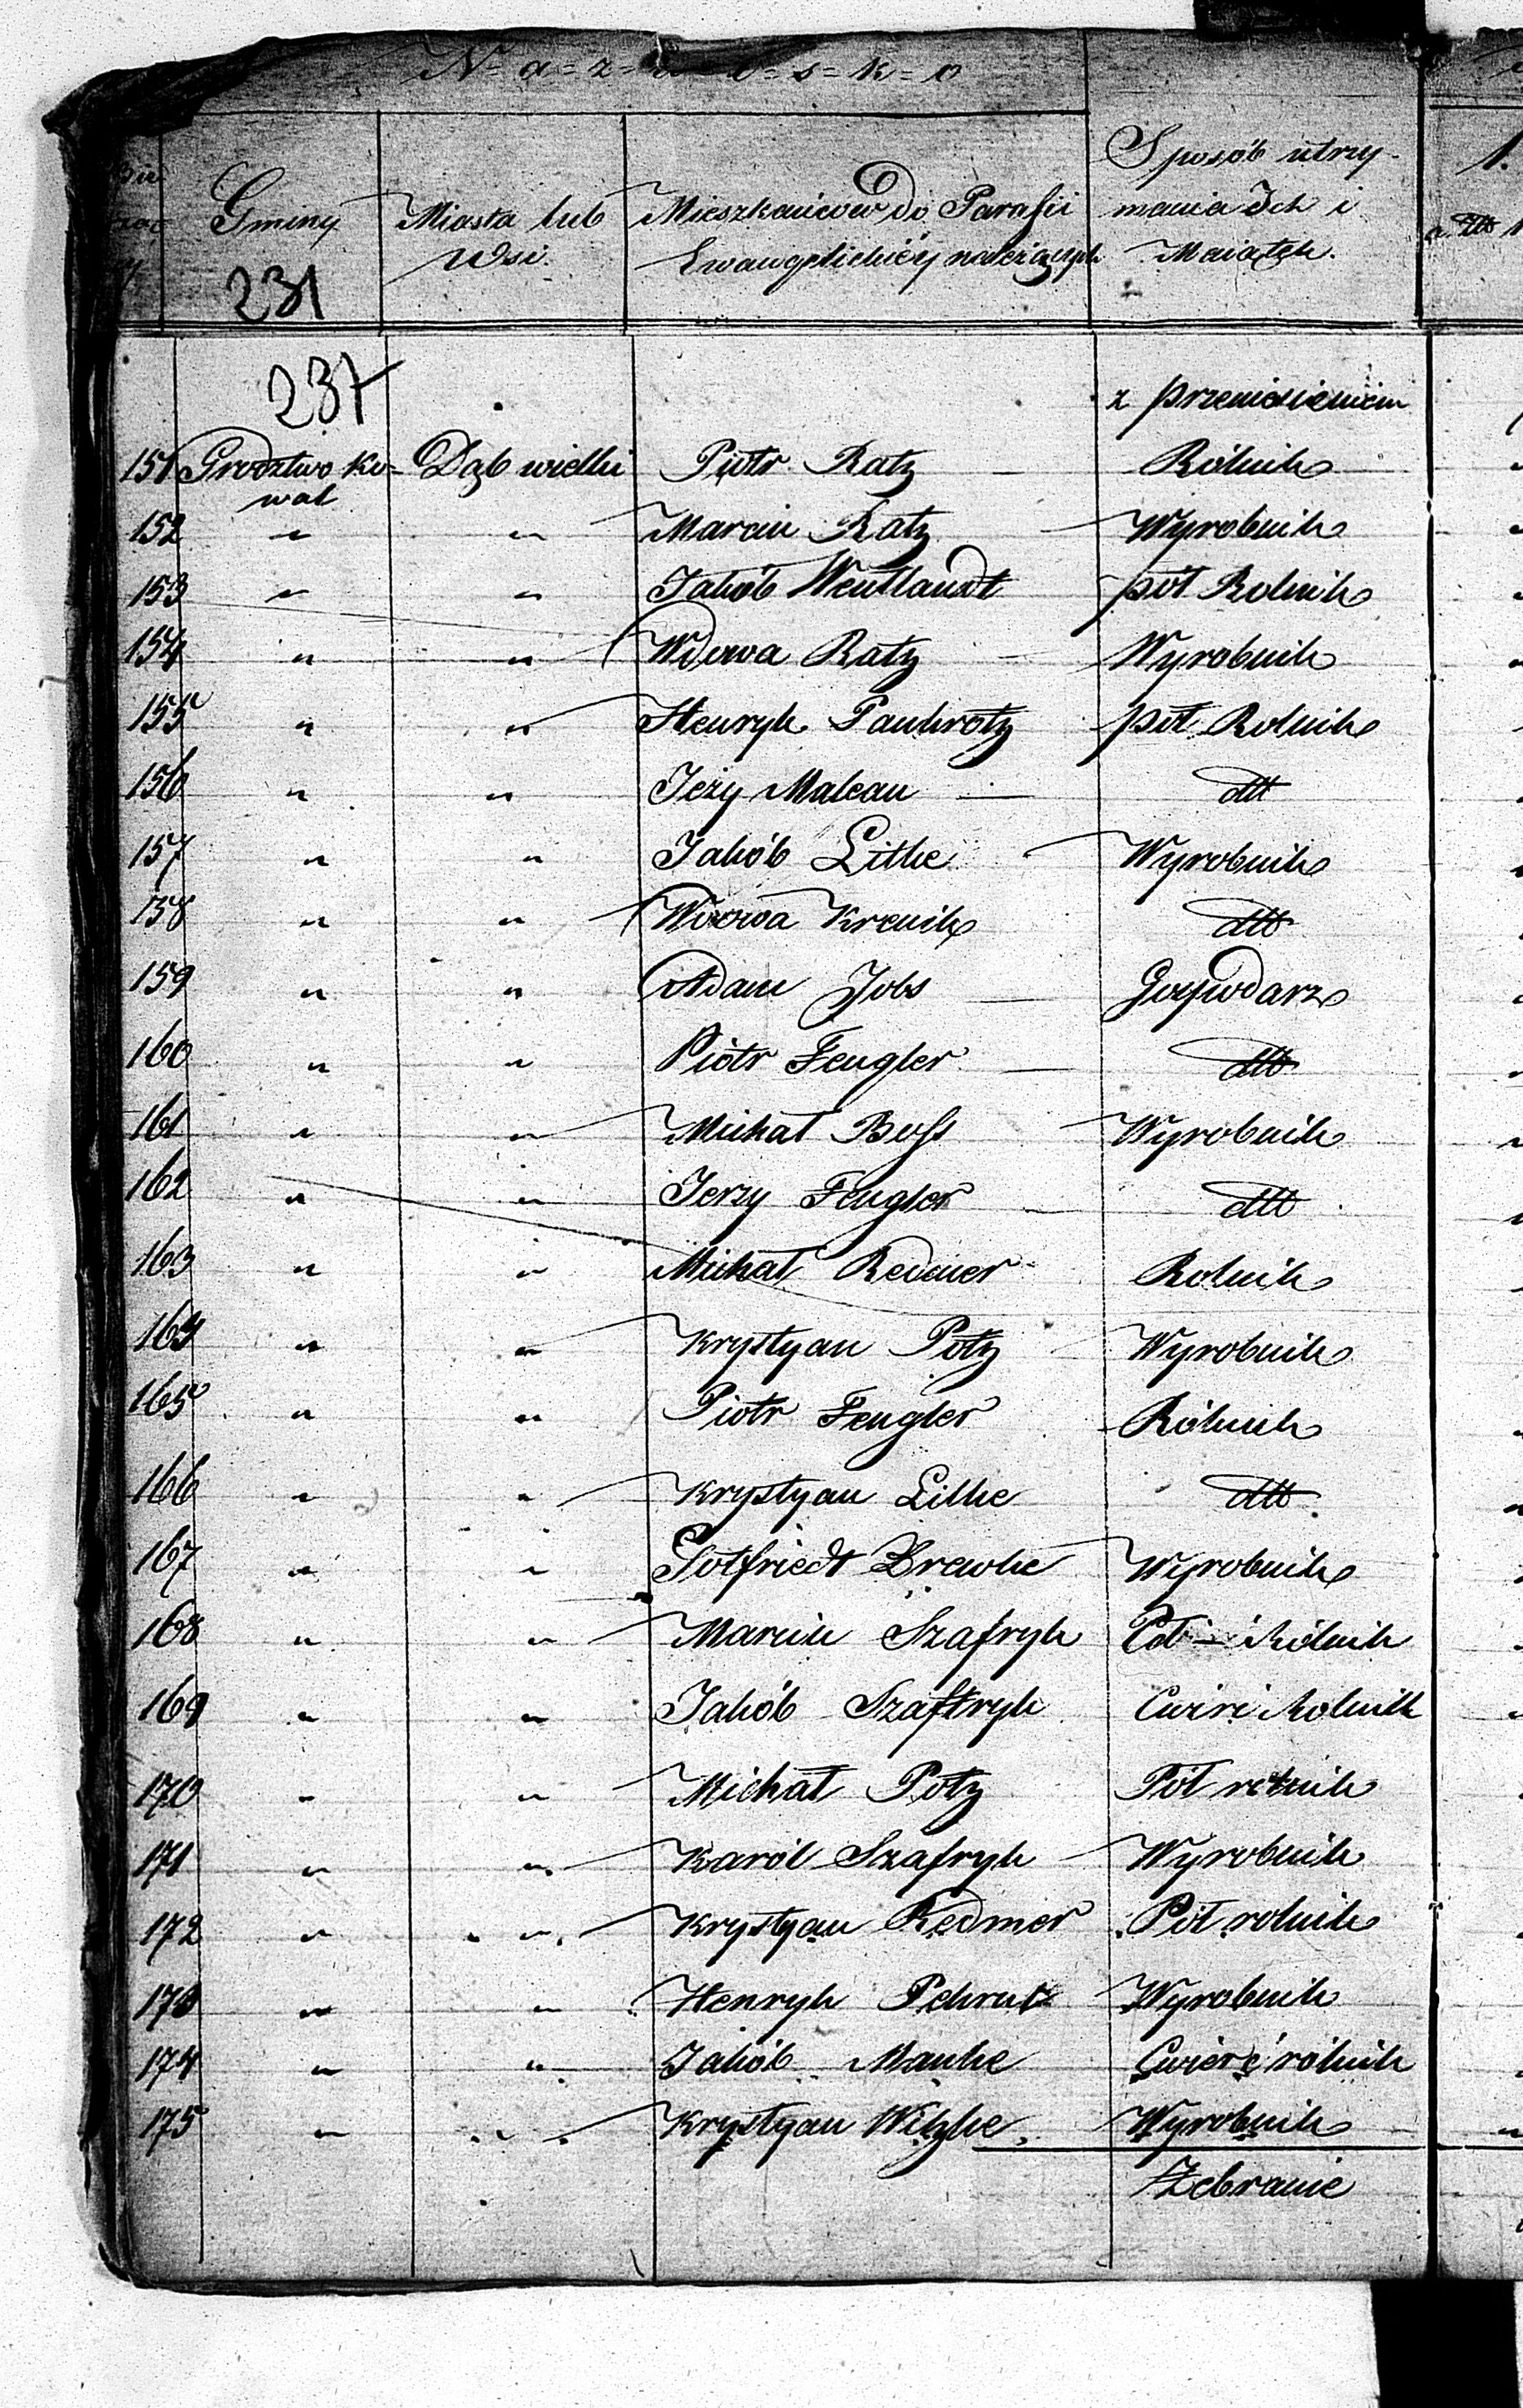 N=a=z=w=i=s=k=o
Gminy
Miasta lub
Wsi.
Mieszkańców do Parafii
Ewangelickiéy należących
Sposób utrzy-
mania Ich i
Maiątek.
1.
231
237
z przeniesieniem
151 Grodztwo Ko- Dąb wielki Piotr Ratz Rólnik
wal
152 " " Marcin Ratz Wyrobnik
153 " " Jakób Wentlandt pół Rolnik
154 " " Wdowa Ratz Wyrobnik
155 " " Henryk Pankratz pół Rolnik
156 " " Jeży Malcau dtt
157 " " Jakób Litke Wyrobnik
158 " " Wdowa Krenik dtt
159 " " Adam Jobs Gospodarz
160 " " Piotr Fengler dtt
161 " " Michał Boss Wyrobnik
162 " " Jerzy Fengler dtt
163 " " Michał Redmer Rolnik
164 " " Krystyan Potz Wyrobnik
165 " " Piotr Fengler Rólnik
166 " " Krystyan Litke dtt
167 " " Gotfriedt Drewke Wyrobnik
168 " " Marcin Szafryk Pół – Rólnik
169 " " Jakób Szaftryk Cwierć Rolnik
170 " " Michał Potz Pół rolnik
171 " " Karól Szafryk Wyrobnik
172 " " Krystyan Redmer Pół rolnik
173 " " Henryk Pekrutz Wyrobnik
174 " " Jakób Manke Cwierć rólnik
175 " " Krystyan Wilzke Wyrobnik
Zebranie